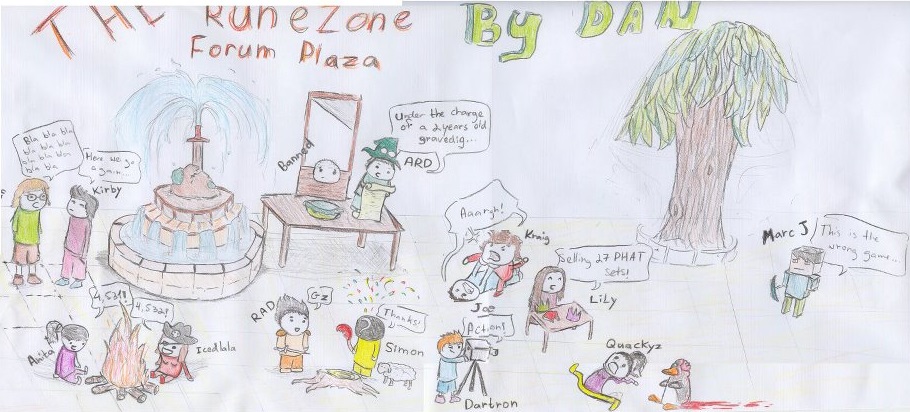 THE RuneZone
By DAN
Forum Plaza
Bla bla bla
bla bla bla
bla bla bla
bla bla
Here we go
again...
Kirby
Banned
Under the charge
of a 2 years old
gravedig...
ARD
Aaargh!
Kraig
Joe
Selling 27 PHAT
sets!
LiLy
Marc J
This is the
wrong game...
4,531!
4,532!
Anita
Icedlala
RAD
Gz
Thanks!
Simon
Action!
Dartron
Quackyz